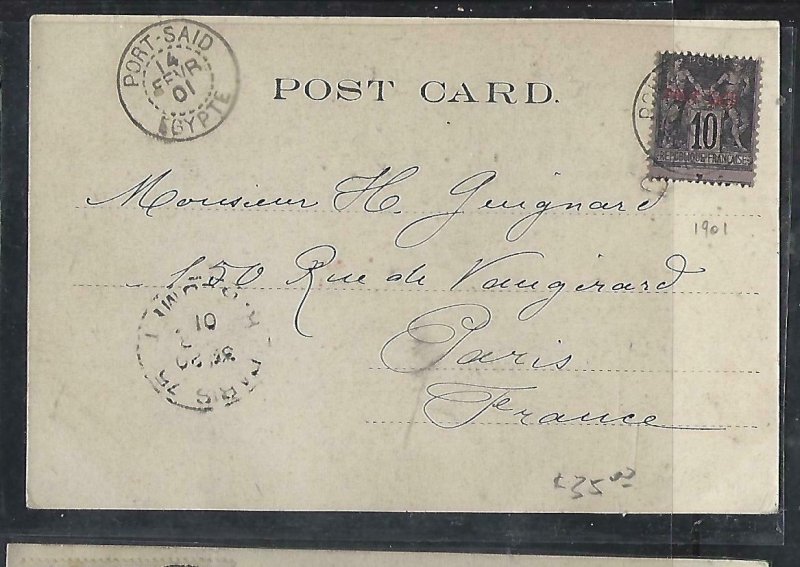 PORT-SAID
14
FEVR
01
EGYPTE
POST CARD.
PORT
10
REPUBLIQUE FRANCAISE
1901
Monsieur H. Guignard
150 Rue de Vaugirard
Paris
France
PARIS 15
01
£35.00